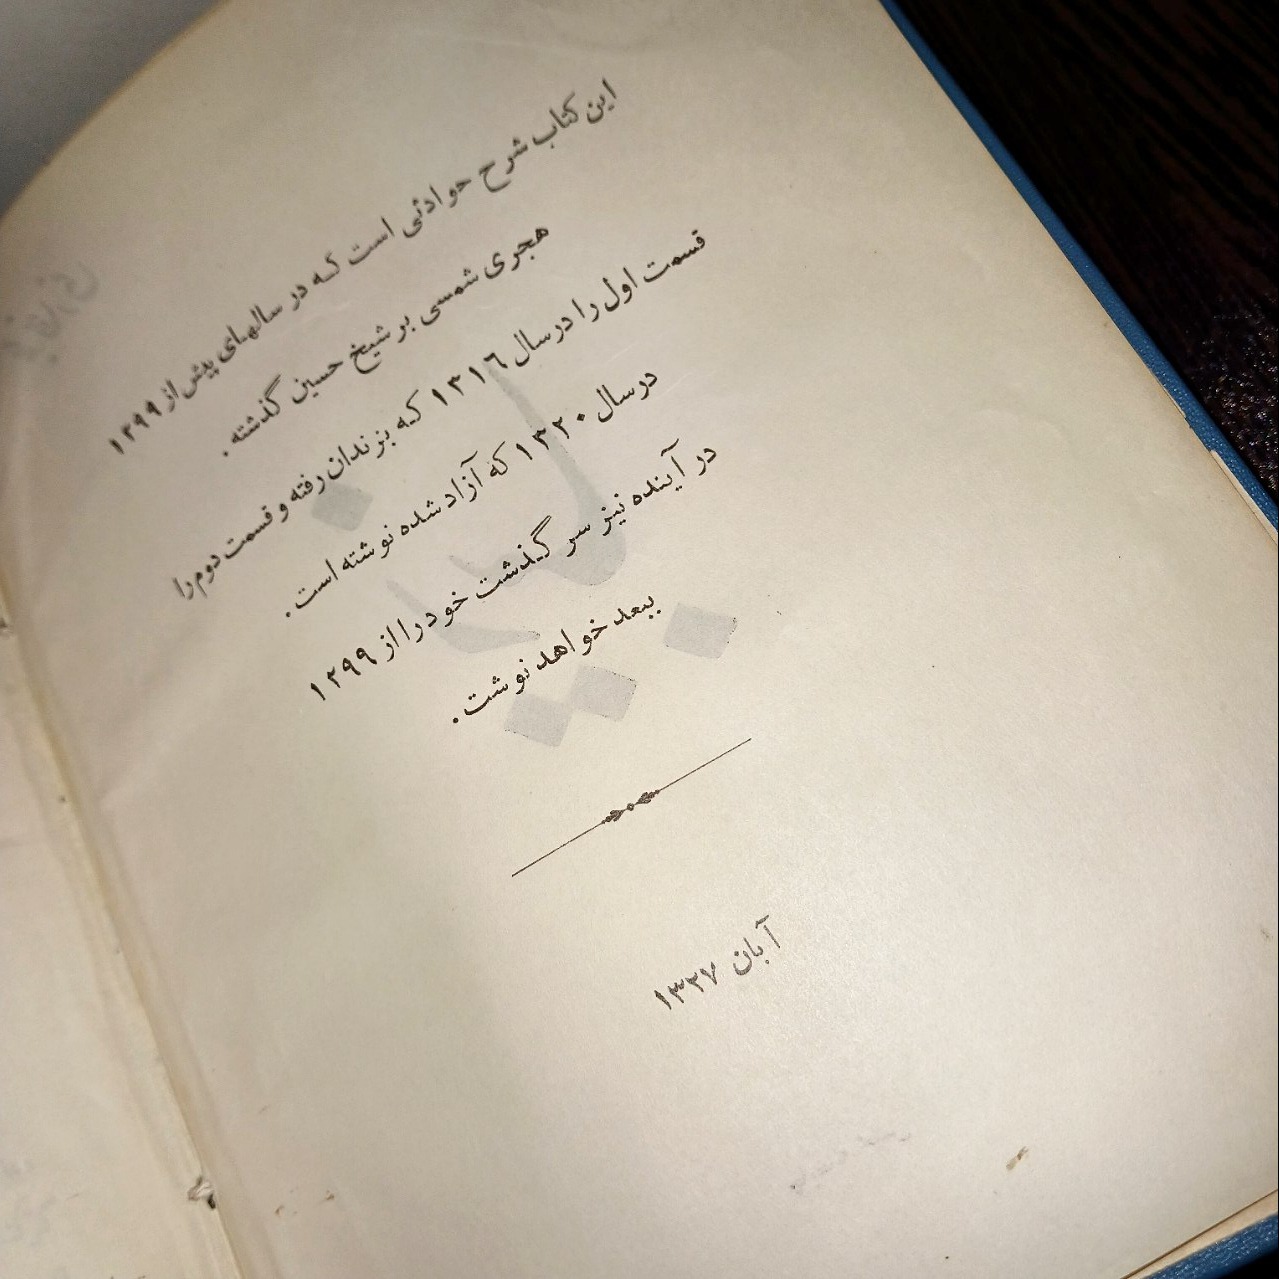 این کتاب شرح حوادثی است که در سالهای پیش از ۱۲۹۹
هجری شمسی بر شیخ حسین گذشته .
قسمت اول را در سال ۱۳۱۶ که بزندان رفته و قسمت دوم را
در سال ۱۳۲۰ که آزاد شده نوشته است .
در آینده نیز سر گذشت خود را از ۱۲۹۹
ببعد خواهد نوشت .
آبان ۱۳۲۷